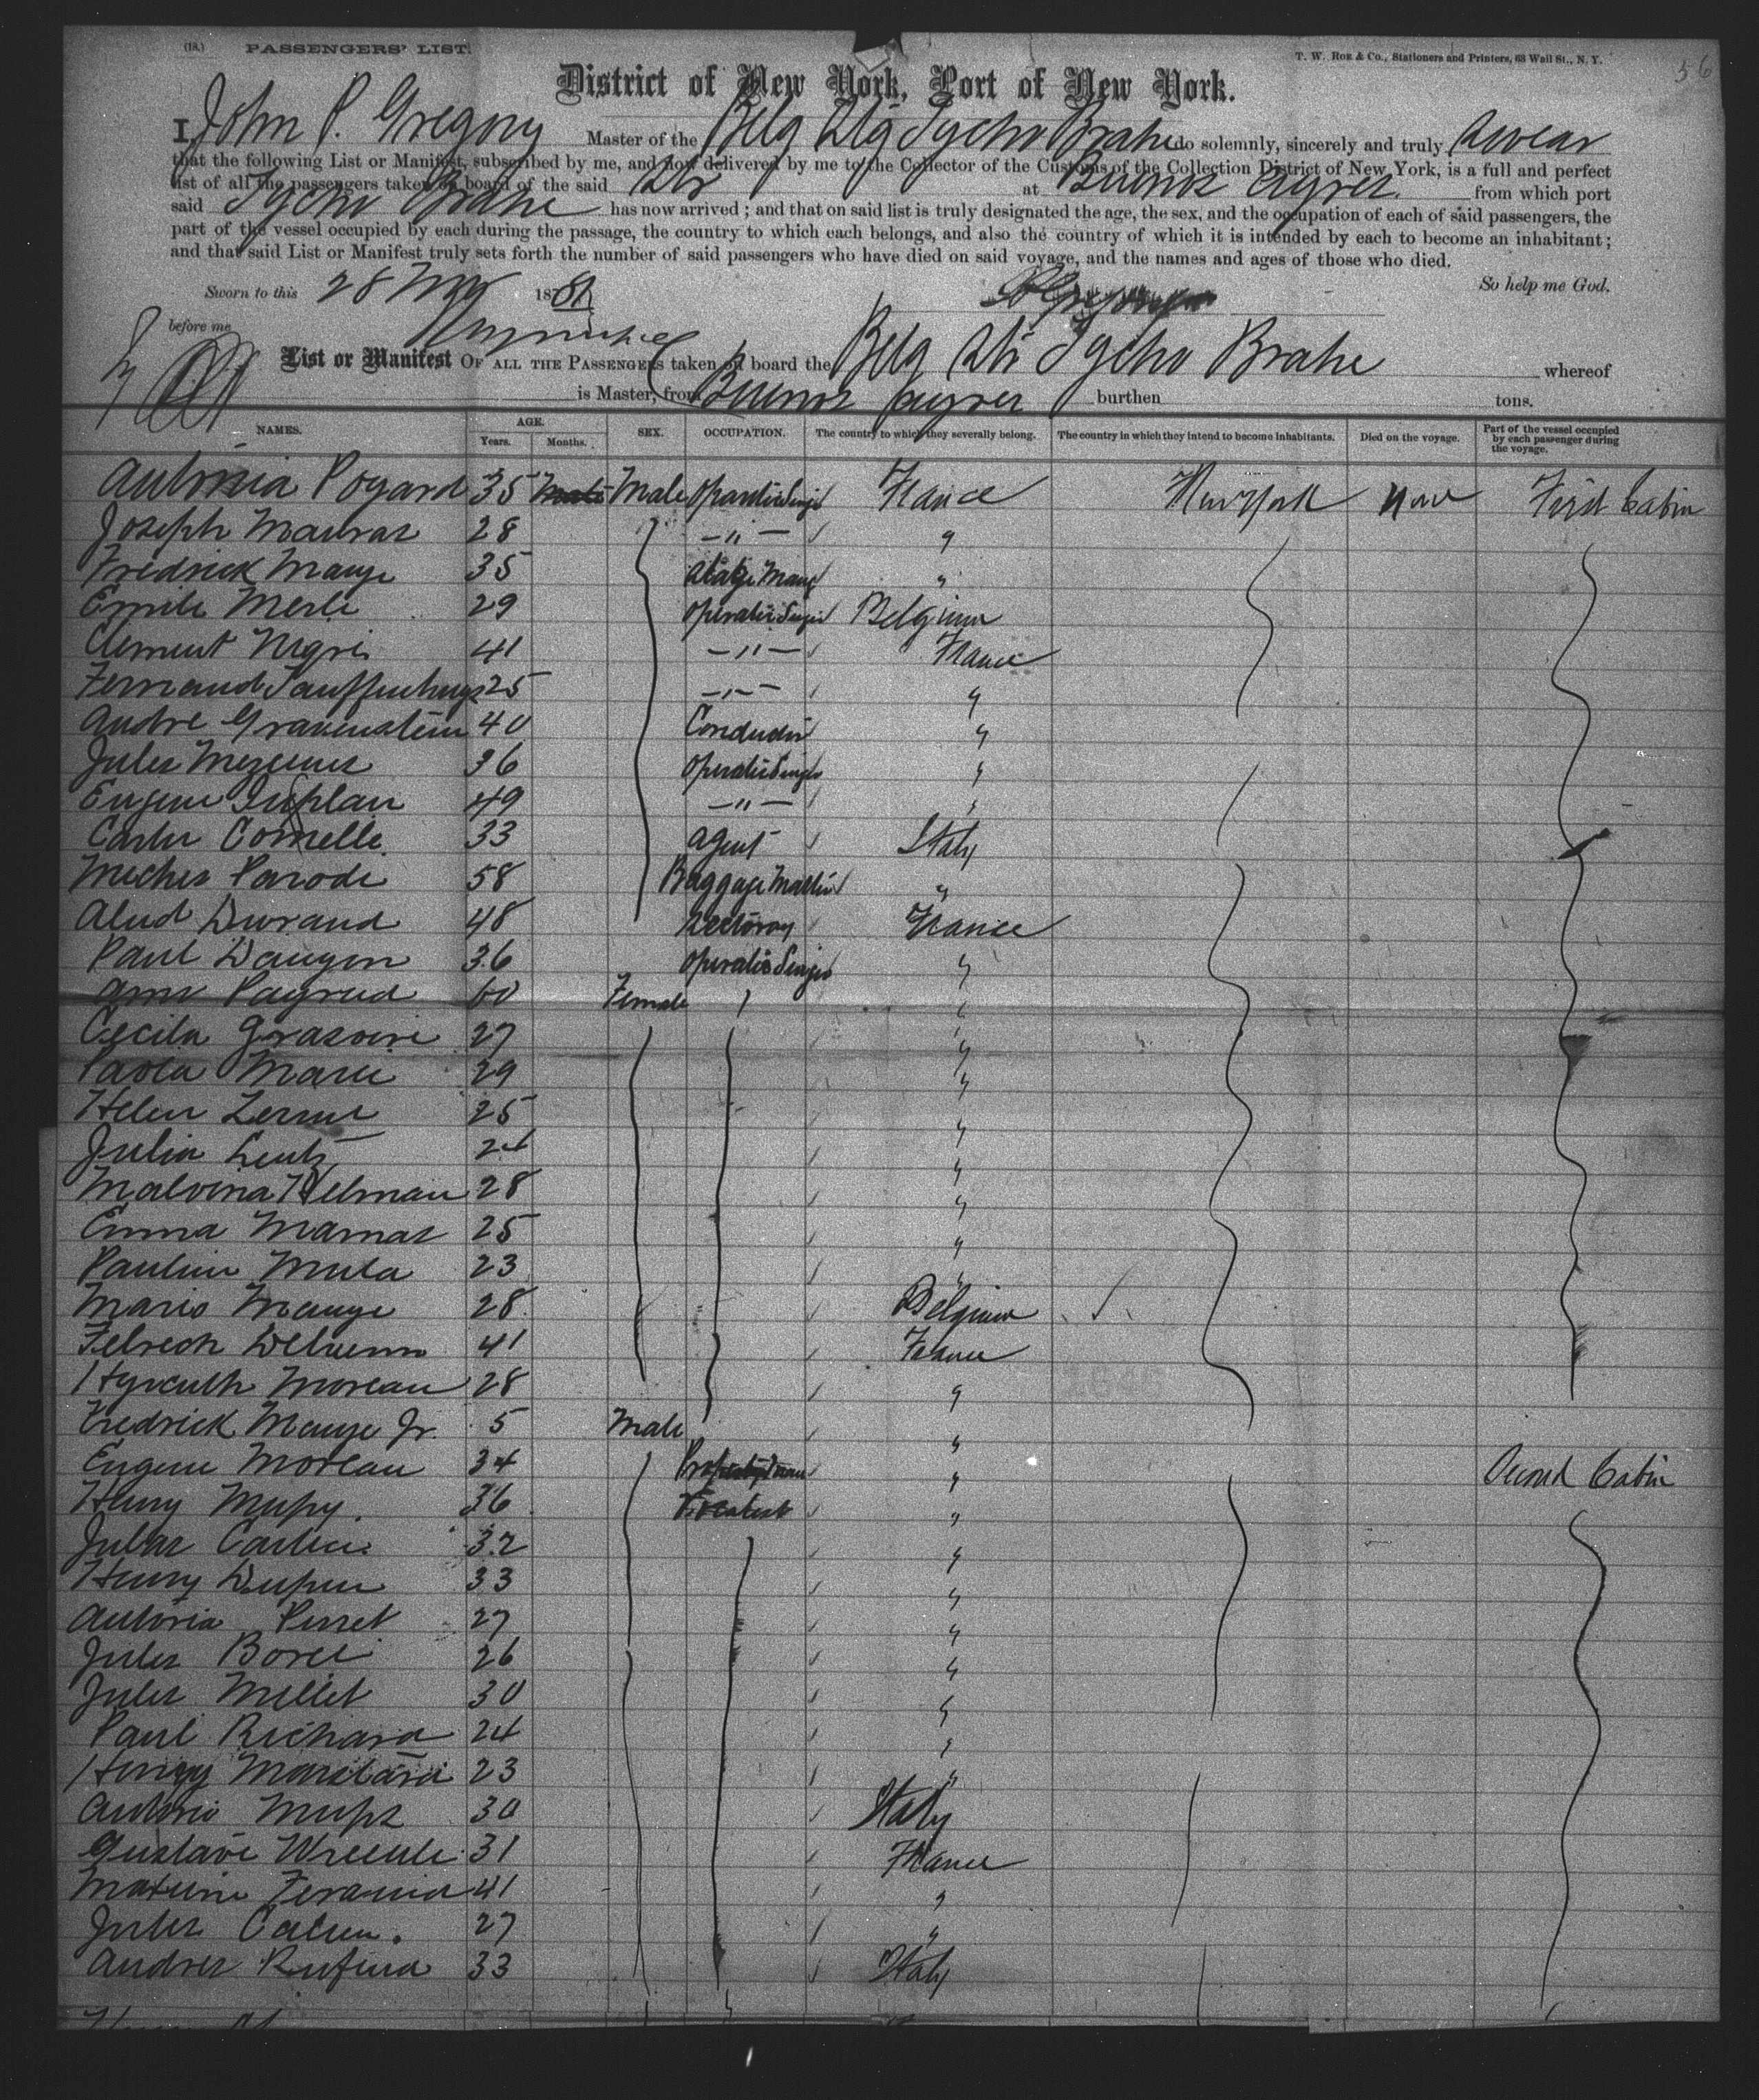 (18.) PASSENGERS' LIST. T. W. Roe & Co., Stationers and Printers, 63 Wall St., N. Y. 56
District of New York, Port of New York.
I, John P. Gregory Master of the Belg Str Tycho Brahe do solemnly, sincerely and truly swear
that the following List or Manifest, subscribed by me, and now delivered by me to the Collector of the Customs of the Collection District of New York, is a full and perfect
list of all the passengers taken on board of the said Str at Buenos Ayres from which port
said Tycho Brahe has now arrived ; and that on said list is truly designated the age, the sex, and the occupation of each of said passengers, the
part of the vessel occupied by each during the passage, the country to which each belongs, and also the country of which it is intended by each to become an inhabitant;
and that said List or Manifest truly sets forth the number of said passengers who have died on said voyage, and the names and ages of those who died.
Sworn to this 28 Nov 1881 So help me God.
before me
List or Manifest OF ALL THE PASSENGERS taken on board the Belg Str Tycho Brahe whereof
is Master, from Buenos Ayres burthen tons.
NAMES. AGE. Years. Months. SEX. OCCUPATION. The country to which they severally belong. The country in which they intend to become inhabitants. Died on the voyage. Part of the vessel occupied by each passenger during the voyage.
Antonia Pogard 35 Male Male France New York First Cabin
Joseph Mauras 28 — " — "
Fredrick Mauge 35 Stage Mang "
Emile Merle 29 Operatic Singer Belgium
Clement Nigri 41 — " — France
Fernand 25 — " — "
Andre Gravenstein 40 Conductor "
Jules 36 Operatic Singer "
Eugene Duplan 49 — " — "
Carlu Comelle 33 Agent Italy
Meches Parodi 58 Baggage Master "
Alud Durand 48 France
Paul Daugon 36 Operatic Singer "
Ann Pagrud 60 Female "
Cecila Grasoire 27 "
Paola Marie 29 "
Helen Leroux 25 "
Julia Lentz 24 "
Malvina Helman 28 "
Emma Mamas 25 "
Paulin Mula 23 "
Mario Mauge 28 Belgium
Felrech Delvenn 41 France
Hyaculth Moreau 28 "
Fredrick Mauge Jr. 5 Male "
Eugene Moreau 34 "  Second Cabin
Henry Mupy 36 "
Julas Carlin 32 "
Henry Dupen 33 "
Antoria Perret 27 "
Jules Borel 26 "
Jules Millet 30 "
Paul Richard 24 "
Henry 23 "
Antonio Mups 30 Italy
Gustave 31 France
Maturin Feramid 41 "
Jules Calun. 27 "
Andres Rufina 33 Italy